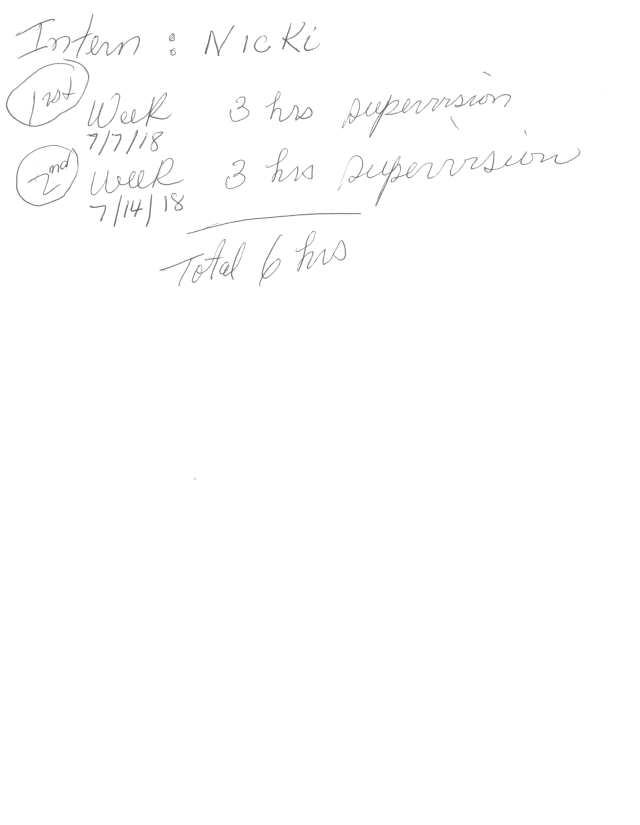 Intern : Nicki
1rst Week 3 hrs supervision
7/7/18
2nd Week 3 hrs supervision
7/14/18
Total 6 hrs